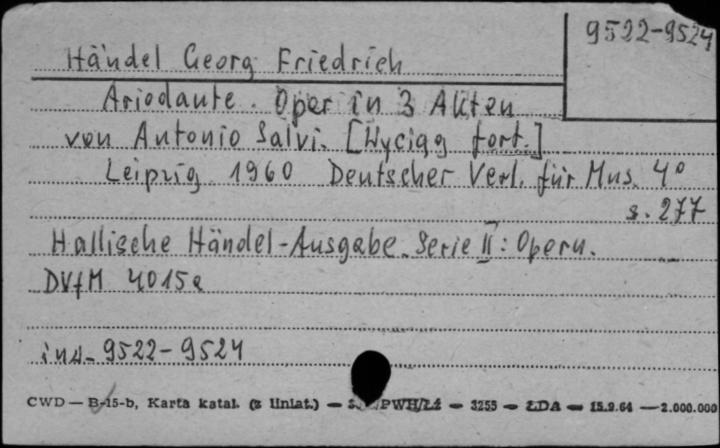 9522-9524
Händel Georg Friedrich
Ariodante. Oper in 3 Akten
von Antonio Salvi. [Wyciąg fort.]
Leipzig 1960 Deutscher Verl. für Mus. 4°
s. 277
Hallische Händel-Ausgabe. Serie II: Opern.
DVfM 4015a
inw. 9522-9524
CWD — B-15-b, Karta katal. (z liniat.) — PWH/Łż — 3255 — ŁDA — 15.9.64 — 2.000.000